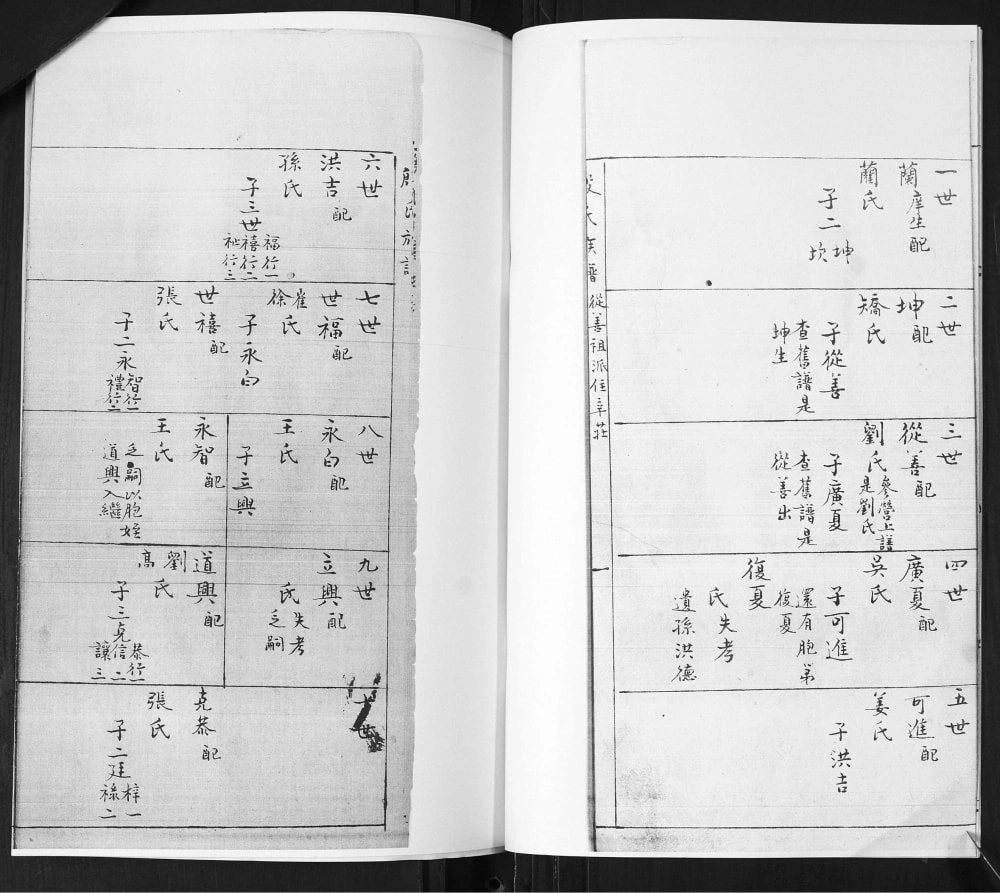 一世
蘭庠生配
藺氏
子二坤
坎
二世
坤配
矯氏
子從善
查舊譜是
坤生
三世
從善配
劉氏參營上譜
是劉氏
子廣夏
查舊譜是
從善出
四世
廣夏配
吳氏
子可進
還有胞弟
復夏
復夏
氏失考
遺孫洪德
五世
可進配
姜氏
子洪吉
氏族譜 從善祖派住辛莊
一
六世
洪吉配
孫氏
子三世福行一
禧行二
祉行三
七世
世福配
崔
徐氏
子永白
世禧配
張氏
子二永智行一
禮行二
八世
永白配
王氏
子立興
永智配
王氏
乏嗣以胞姪
道興入繼
九世
立興配
氏失考
乏嗣
道興配
劉
高氏
子三克恭行一
信二
讓三
十世
克恭配
張氏
子二廷梓一
祿二